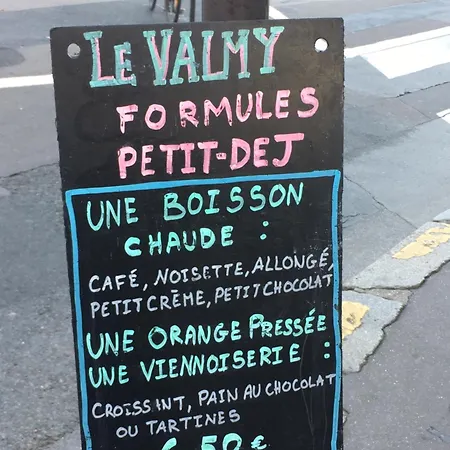 LE VALMY
FORMULES
PETIT-DEJ
UNE BOISSON
CHAUDE :
CAFÉ, NOISETTE, ALLONGÉ,
PETIT CRÈME, PETIT CHOCOLAT
UNE ORANGE PRESSÉE
UNE VIENNOISERIE :
CROISSANT, PAIN AU CHOCOLAT
OU TARTINES
6,50 €